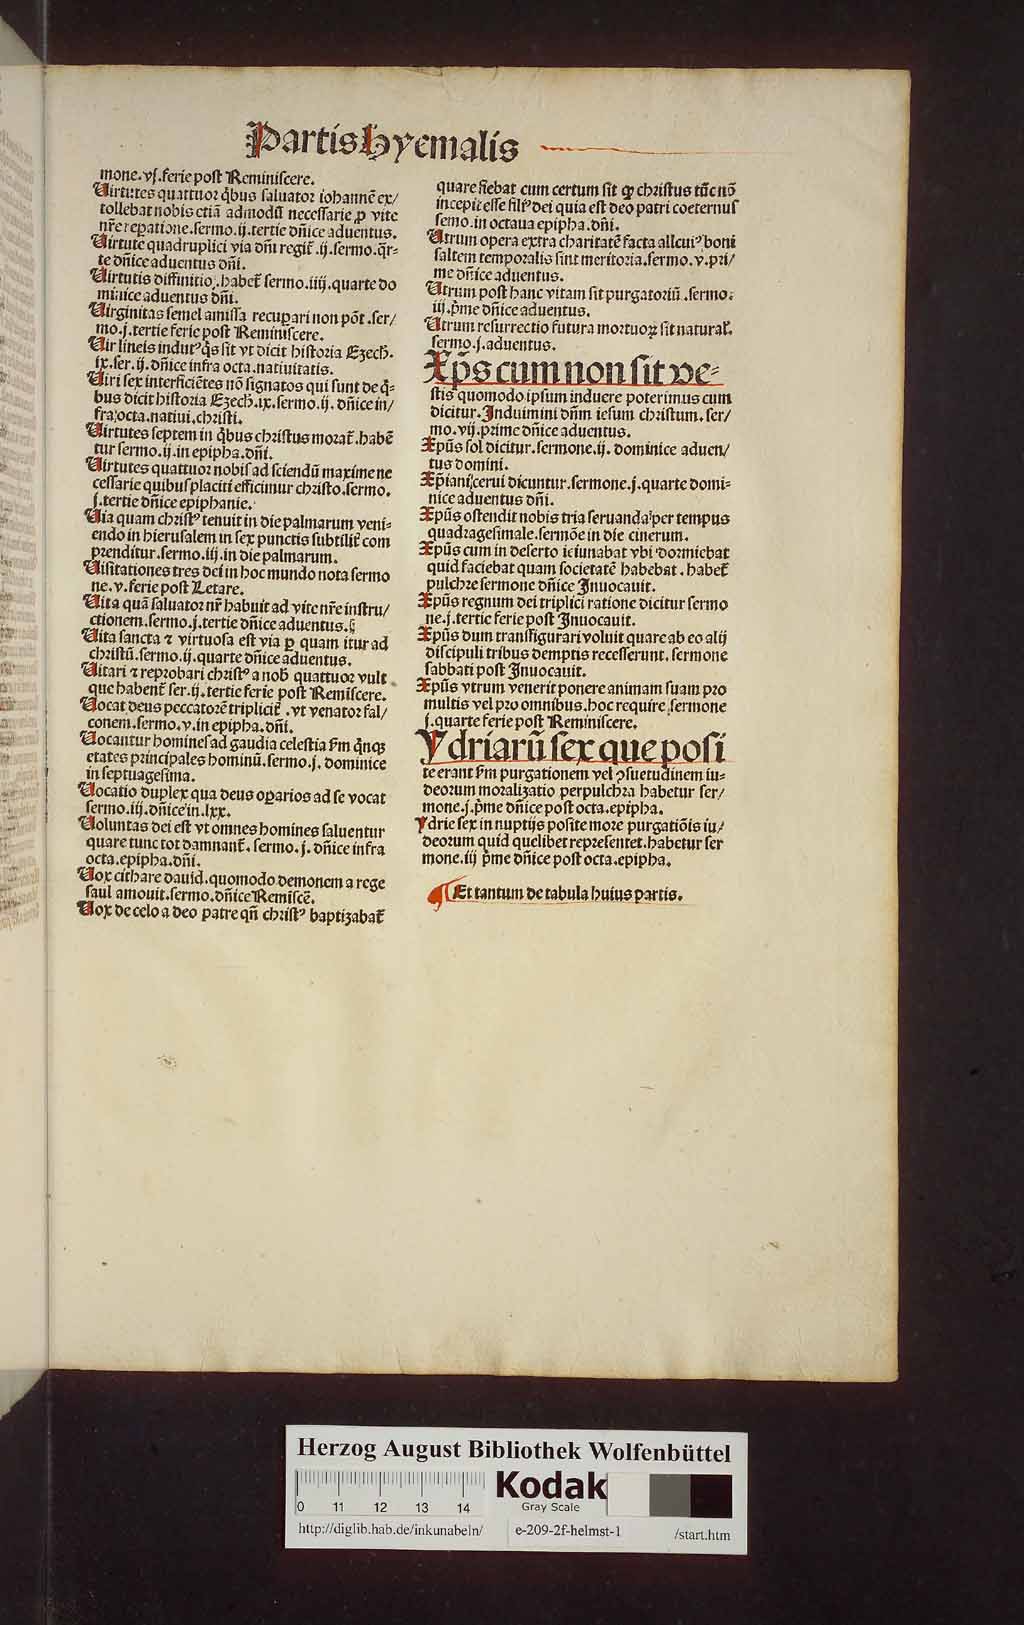 Partis Hyemalis
mone. vj. ferie post Reminiscere.
Uirtutes quattuor q̇bus saluator iohannē ex/
tollebat nobis etiā admodū necessarie ꝓ vite
nr̄e reparatione. sermo. ij. tertie dn̄ice aduentus.
Uirtute quadruplici via dn̄i regit̄. ij. sermo. q̇r-
te dn̄ice aduentus dn̄i.
Uirtutis diffinitio. habet̄ sermo. iiij. quarte do
minice aduentus dn̄i.
Uirginitas semel amissa recupari non pōt. ser/
mo. j. tertie ferie post Reminiscere.
Uir lineis indutꝰ q̇s sit vt dicit historia Ezech̄.
ix. ser. ij. dn̄ice infra octa. natiuitatis.
Uiri sex interficiētes nō signatos qui sunt de q̇-
bus dicit historia Ezech. ix. sermo. ij. dn̄ice in/
fra octa. natiui. christi.
Uirtutes septem in q̇bus christus morat̄. habē
tur sermo. ij. in epipha. dn̄i.
Uirtutes quattuor nobis ad sciendū maxime ne
cessarie quibus placiti efficimur christo. sermo.
j. tertie dn̄ice epiphanie.
Uia quam christꝰ tenuit in die palmarum veni-
endo in hierusalem in sex punctis subtilit̄ com
prenditur. sermo. iij. in die palmarum.
Uisitationes tres dei in hoc mundo nota sermo
ne. v. ferie post Letare.
Uita quā saluator nr̄ habuit ad vite nr̄e instru/
ctionem. sermo. j. tertie dn̄ice aduentus.
Uita sancta ⁊ virtuosa est via ꝑ quam itur ad
christū. sermo. ij. quarte dn̄ice aduentus.
Uitari ⁊ reprobari christꝰ a nob̄ quattuor vult
que habent̄ ser. ij. tertie ferie post Remiscere.
Uocat deus peccatorē triplicit̄. vt venator fal/
conem. sermo. v. in epipha. dn̄i.
Uocantur homines ad gaudia celestia ẜm q̇nqꝫ
etates principales hominū. sermo. j. dominice
in septuagesima.
Uocatio duplex qua deus oꝑarios ad se vocat
sermo. iij. dn̄ice in. lxx.
Uoluntas dei est vt omnes homines saluentur
quare tunc tot damnant̄. sermo. j. dn̄ice infra
octa. epipha. dn̄i.
Uox cithare dauid. quomodo demonem a rege
saul amouit. sermo. dn̄ice Remiscē.
Uox de celo a deo patre qn̄ christꝰ baptizabat̄
quare fiebat cum certum sit ꝙ christus tūc nō
incepit esse filiꝰ dei quia est deo patri coeternus
semo. in octaua epipha. dn̄i.
Utrum opera extra charitatē facta allcuiꝰ boni
saltem temporalis sint meritoria. sermo. v. pri/
me dn̄ice aduentus.
Utrum post hanc vitam sit purgatoriū. sermo:
iij. p̄me dn̄ice aduentus.
Utrum resurrectio futura mortuoꝝ sit natural̄.
sermo. j. aduentus.
Xp̄s cum non sit ve-
stis quomodo ipsum induere poterimus cum
dicitur. Induimini dn̄m iesum christum. ser/
mo. vij. prime dn̄ice aduentus.
Xpūs sol dicitur. sermone. ij. dominice aduen/
tus domini.
Xp̄iani cerui dicuntur. sermone. j. quarte domi-
nice aduentus dn̄i.
Xpūs ostendit nobis tria seruanda per tempus
quadragesimale. sermōe in die cinerum.
Xpūs cum in deserto ieiunabat vbi dormiebat
quid faciebat quam societatē habebat. habet̄
pulchre sermone dn̄ice Inuocauit.
Xpūs regnum dei triplici ratione dicitur sermo
ne. j. tertie ferie post Inuocauit.
Xpūs dum transfigurari voluit quare ab eo alij
discipuli tribus demptis recesserunt. sermone
sabbati post Inuocauit.
Xpūs vtrum venerit ponere animam suam pro
multis vel pro omnibus. hoc require sermone
j. quarte ferie post Reminiscere.
Ydriarū sex que posi
te erant ẜm purgationem vel ꝯsuetudinem iu-
deorum moralizatio perpulchra habetur ser/
mone. j. p̄me dn̄ice post octa. epipha.
Ydrie sex in nuptijs posite more purgatiōis iu/
deorum quid quelibet representet. habetur ser
mone. iij p̄me dn̄ice post octa. epipha.
Et tantum de tabula huius partis.
Herzog August Bibliothek Wolfenbüttel
0 11 12 13 14
Kodak
Gray Scale
http://diglib.hab.de/inkunabeln/ e-209-2f-helmst-1 /start.htm